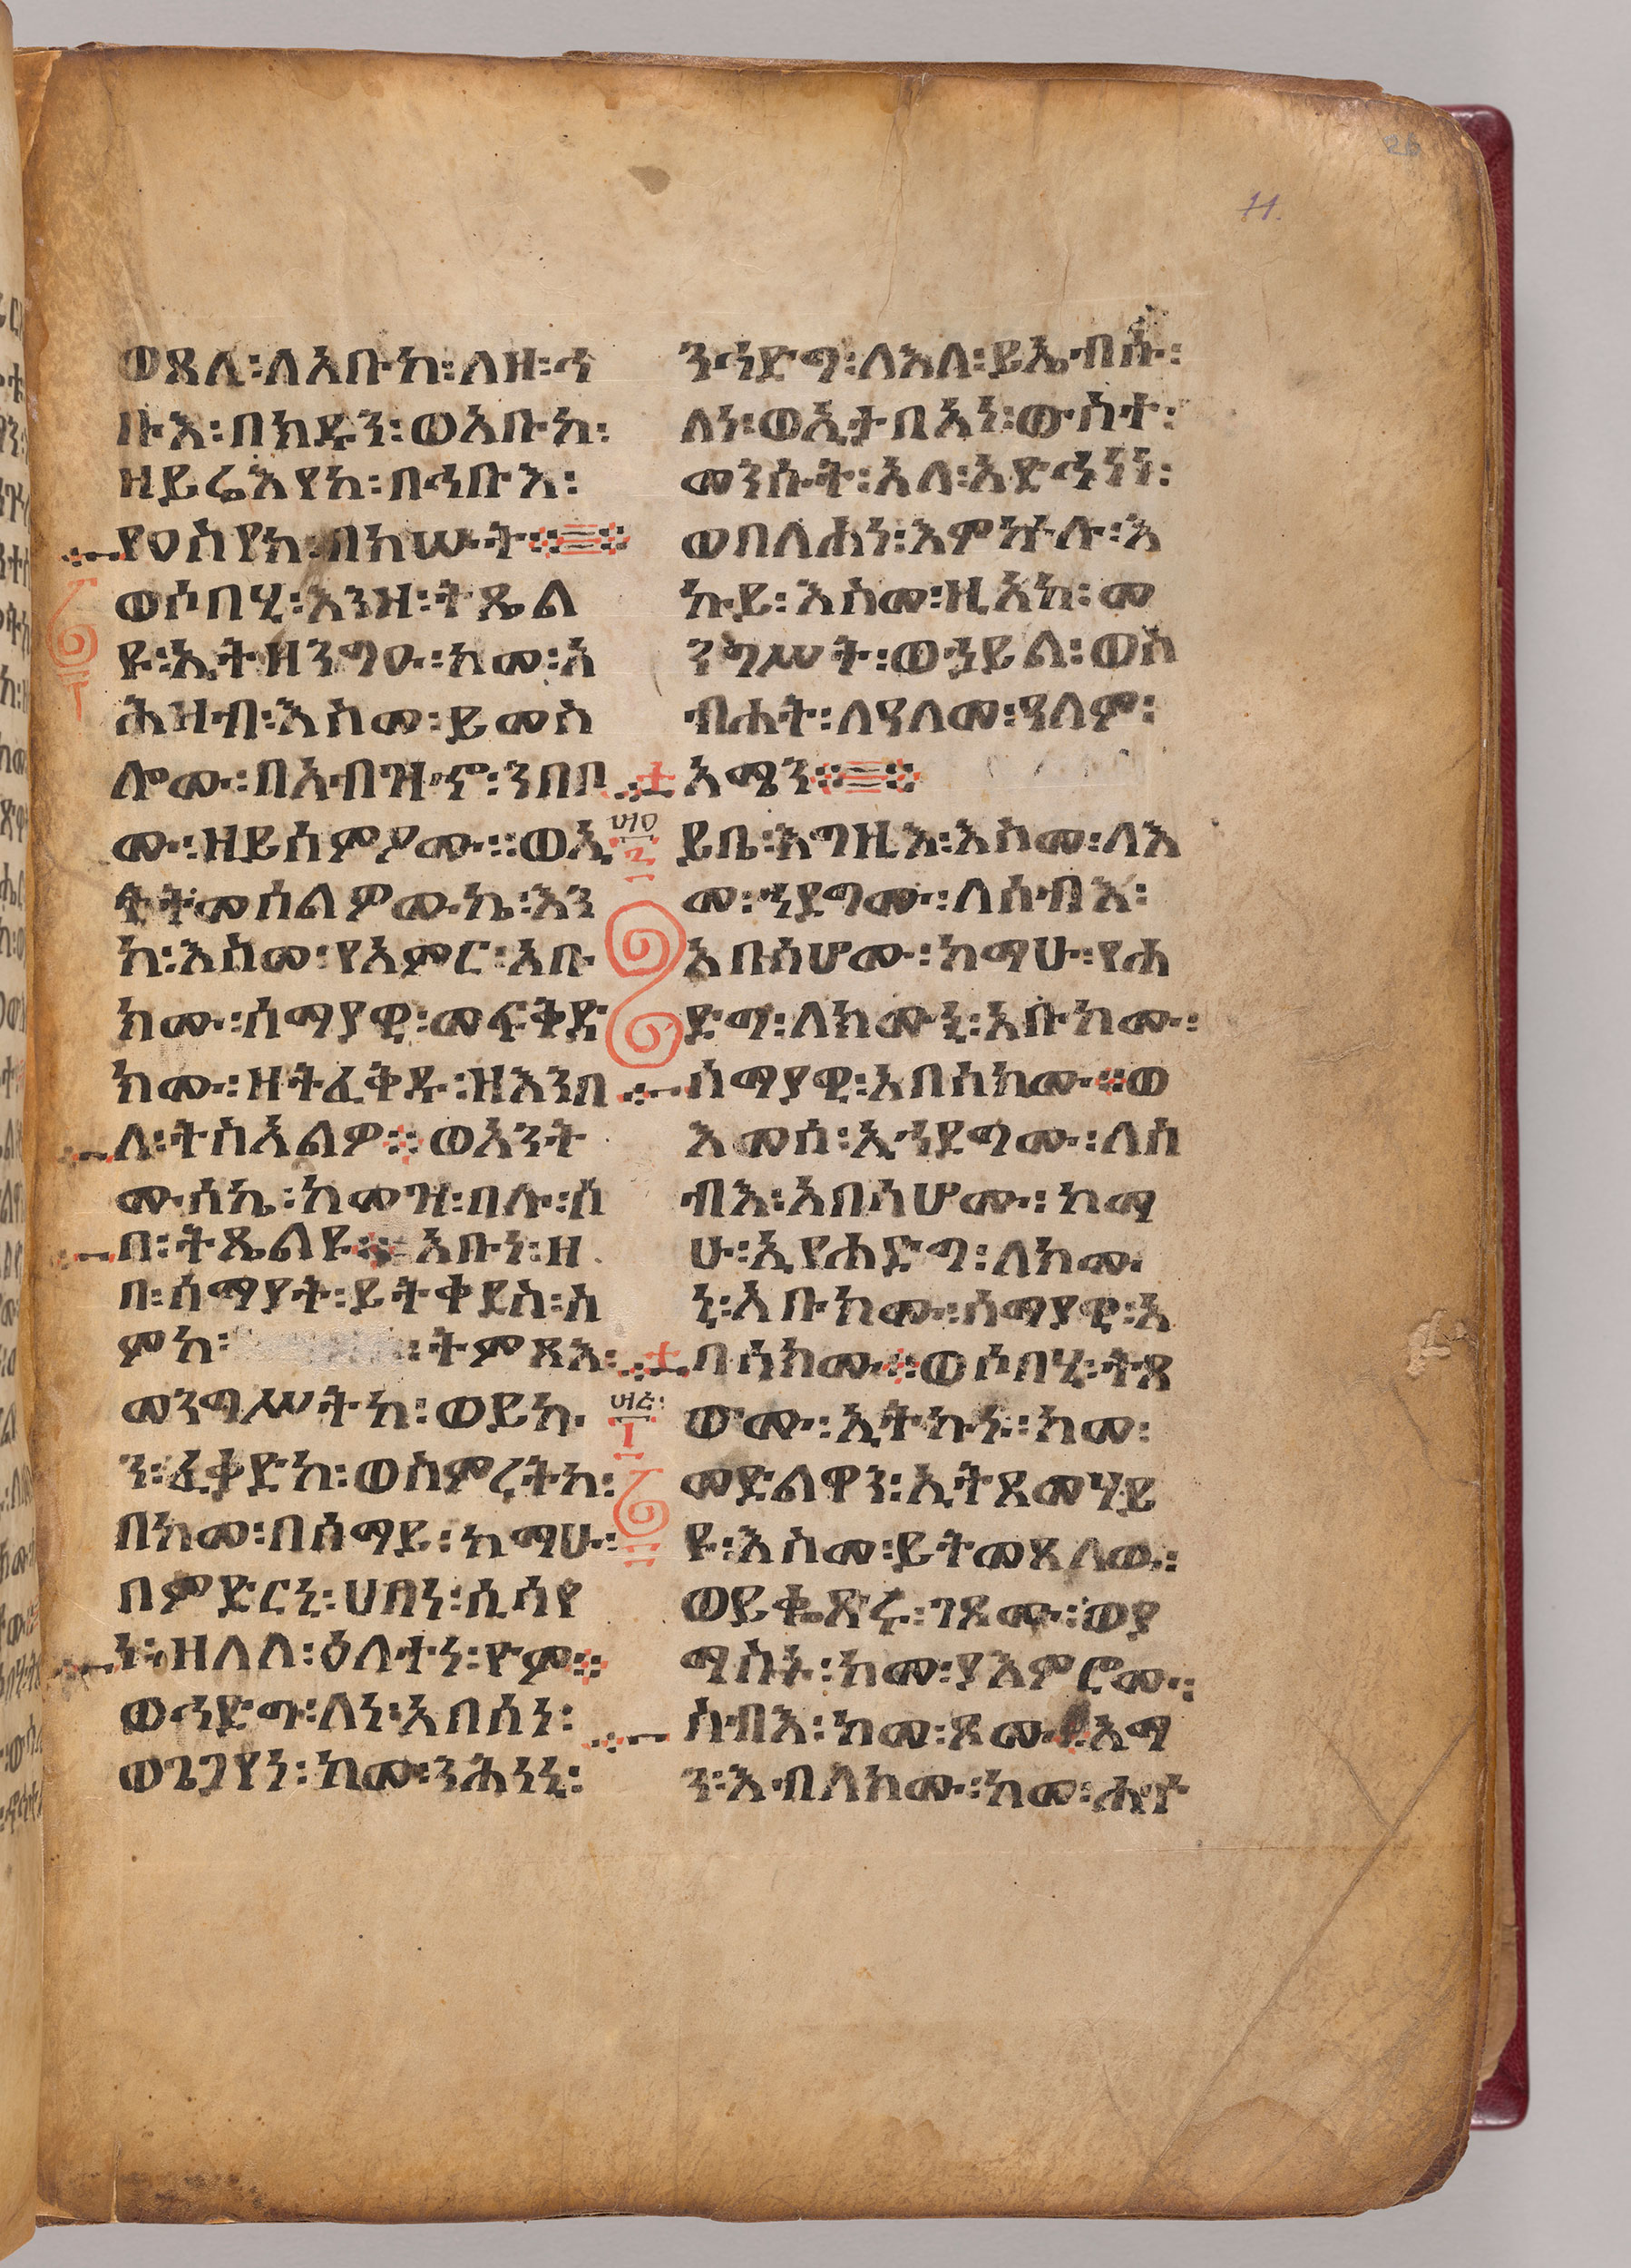 ወጸሊ፡ለአቡከ፡ለዘ፡ኅ
ቡእ፡በክዱን፡ወአቡከ፡
ዘይሬእየከ፡በኅቡእ፡
የዐስየከ፡በከሡት።
ወሶበሂ፡እንዝ፡ትጼል
ዩ፡ኢትዘንግዑ፡ከመ፡አ
ሕዝብ፡እስመ፡ይመስ
ሎሙ፡በአብዝኆ፡ንበቦ
ሙ፡ዘይሰምዖሙ፡፡ወኢ
ትትመሰልዎሙኬ፡እን
ከ፡እስመ፡የአምር፡አቡ
ክሙ፡ሰማያዊ፡መፍቅድ
ክሙ፡ዘትፈቅዱ፡ዘእንበ
ለ፡ትስአልዎ።ወአንት
ሙሰኬ፡ከመዝ፡በሉ፡ሶ
በ፡ትጼልዩ።አቡነ፡ዘ
በ፡ሰማያት፡ይትቀደስ፡ስ
ምከ፡ ፡ትምጻእ፡
መንግሥትከ፡ወይኩ
ን፡ፈቃድከ፡ወስምረትከ፡
በከመ፡በሰማይ፡ከማሁ፡
በምድርኒ፡ሀበነ፡ሲሳየ
ነ፡ዘለለ፡ዕለትነ፡ዮም።
ወኅድግ፡ለነ፡አበሳነ፡
ወጌጋየነ፡ከመ፡ንሕነኒ፡
ንኅድግ፡ለእለ፡ይኤብሱ፡
ለነ፡ወኢታብአነ፡ውስተ፡
መንሱት፡አላ፡አድኅነነ፡
ወባልሐነ፡እምኵሉ፡እ
ኩይ፡እስመ፡ዚአከ፡መ
ንግሥት፡ወኀይል፡ወስ
ብሐት፡ለዓለመ፡ዓለም፡
አሜን።
ይቤ፡እግዚእ፡እስመ፡ለእ
መ፡ኀደግሙ፡ለሰብእ፡
አበሳሆሙ፡ከማሁ፡የሐ
ድግ፡ለክሙኒ፡አቡክሙ፡
ሰማያዊ፡አበሳክሙ።ወ
እመሰ፡ኢኀደግሙ፡ለሰ
ብእ፡አበሳሆሙ፡ከማ
ሁ፡ኢየሐድግ፡ለክሙ
ኒ፡አቡክሙ፡ሰማያዊ፡አ
በሳክሙ።ወሶበሂ፡ትጸ
ውሙ፡ኢትኩኑ፡ከመ፡
መድልዋን፡ኢትጸመሃይ
ዩ፡እስመ፡ይትመጸለዉ፡
ወይቄጽሩ፡ገጾሙ፡ወያ
ማስኑ፡ከመ፡ያእምሮሙ፡
ሰብእ፡ከመ፡ጾሙ።አማ
ን፡እብለክሙ፡ከመ፡ሐጕ